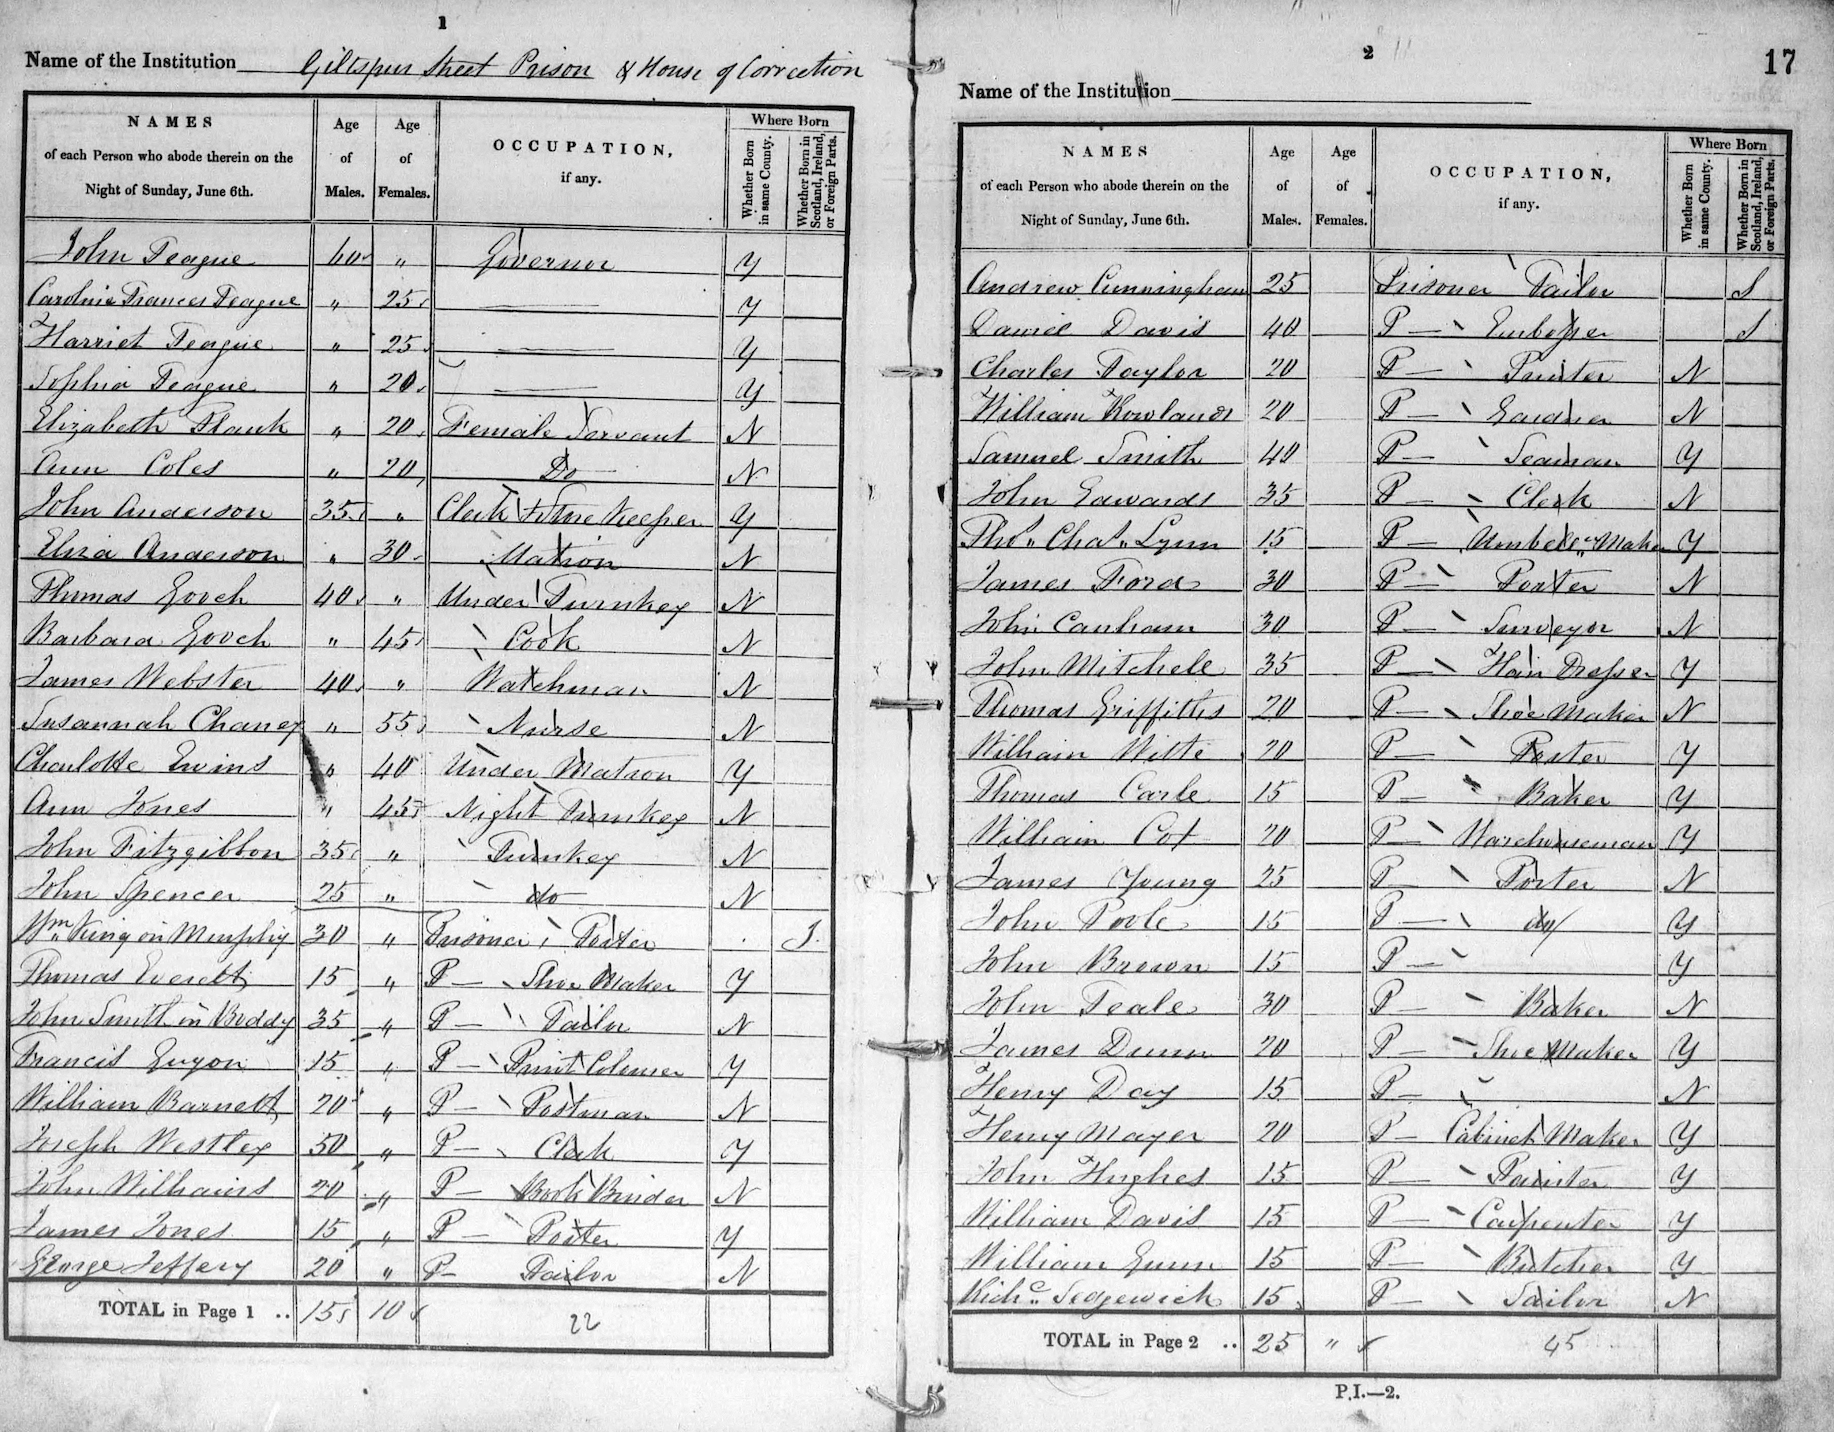 1
Name of the Institution Giltspur Street Prison & House of Correction
NAMES of each Person who abode therein on the Night of Sunday, June 6th. Age of Males. Age of Females. OCCUPATION, if any. Where Born Whether Born in same County. Whether Born in Scotland, Ireland, or Foreign Parts.
John Teague 60 " Governor Y
Caroline Frances Teague " 25 Y
Harriet Teague " 25 Y
Sophia Teague " 20 Y
Elizabeth Plank " 20 Female Servant N
Ann Coles " 20 Do N
John Anderson 35 " Clerk & Store Keeper Y
Eliza Anderson " 30 Matron N
Thomas Gooch 40 " Under Turnkey N
Barbara Gooch " 45 Cook N
James Webster 40 " Watchman N
Susannah Chaney " 55 Nurse N
Charlotte Ewins " 40 Under Matron Y
Ann Jones " 45 Night Turnkey N
John Fitzgibbon 35 " Turnkey N
John Spencer 25 " do N
Wm King or Murphy 30 " Prisoner Porter I
Thomas Everett 15 " P — Shoe Maker Y
John Smith or Boddy 35 " P — Tailor N
Francis Guyon 15 " P — Print Colourer Y
William Barnett 20 " P — Postman N
Joseph Westley 50 " P — Clerk Y
John Williams 20 " P — Book Binder N
James Jones 15 " P — Porter Y
George Jeffery 20 " P — Tailor N
TOTAL in Page 1 .. 15 10 22
2
17
Name of the Institution
NAMES of each Person who abode therein on the Night of Sunday, June 6th. Age of Males. Age of Females. OCCUPATION, if any. Where Born Whether Born in same County. Whether Born in Scotland, Ireland, or Foreign Parts.
Andrew Cunningham 25 Prisoner Tailor S
Daniel Davis 40 P — Embosser S
Charles Taylor 20 P — Printer N
William Rowlands 20 P — Gardner N
Samuel Smith 40 P — Seaman Y
John Edwards 35 P — Clerk N
Thos. Chas. Lynn 15 P — Umbella Maker Y
James Ford 30 P — Porter N
John Canham 30 P — Surveyor N
John Mitchell 35 P — Hair Dresser Y
Thomas Griffiths 20 P — Shoe Maker N
William Witte 20 P — Porter Y
Thomas Carle 15 P — Baker Y
William Cox 20 P — Warehouseman Y
James Young 25 P — Porter N
John Poole 15 P — do Y
John Brown 15 P — Y
John Teale 30 P — Baker N
James Dunn 20 P — Shoe Maker Y
Henry Day 15 P — N
Henry Mayer 20 P — Cabinet Maker Y
John Hughes 15 P — Painter Y
William Davis 15 P — Carpenter Y
William Gunn 15 P — Butcher Y
Richd. Sedgewick 15 P — Sailor N
TOTAL in Page 2 .. 25 " 45
P.I.—2.